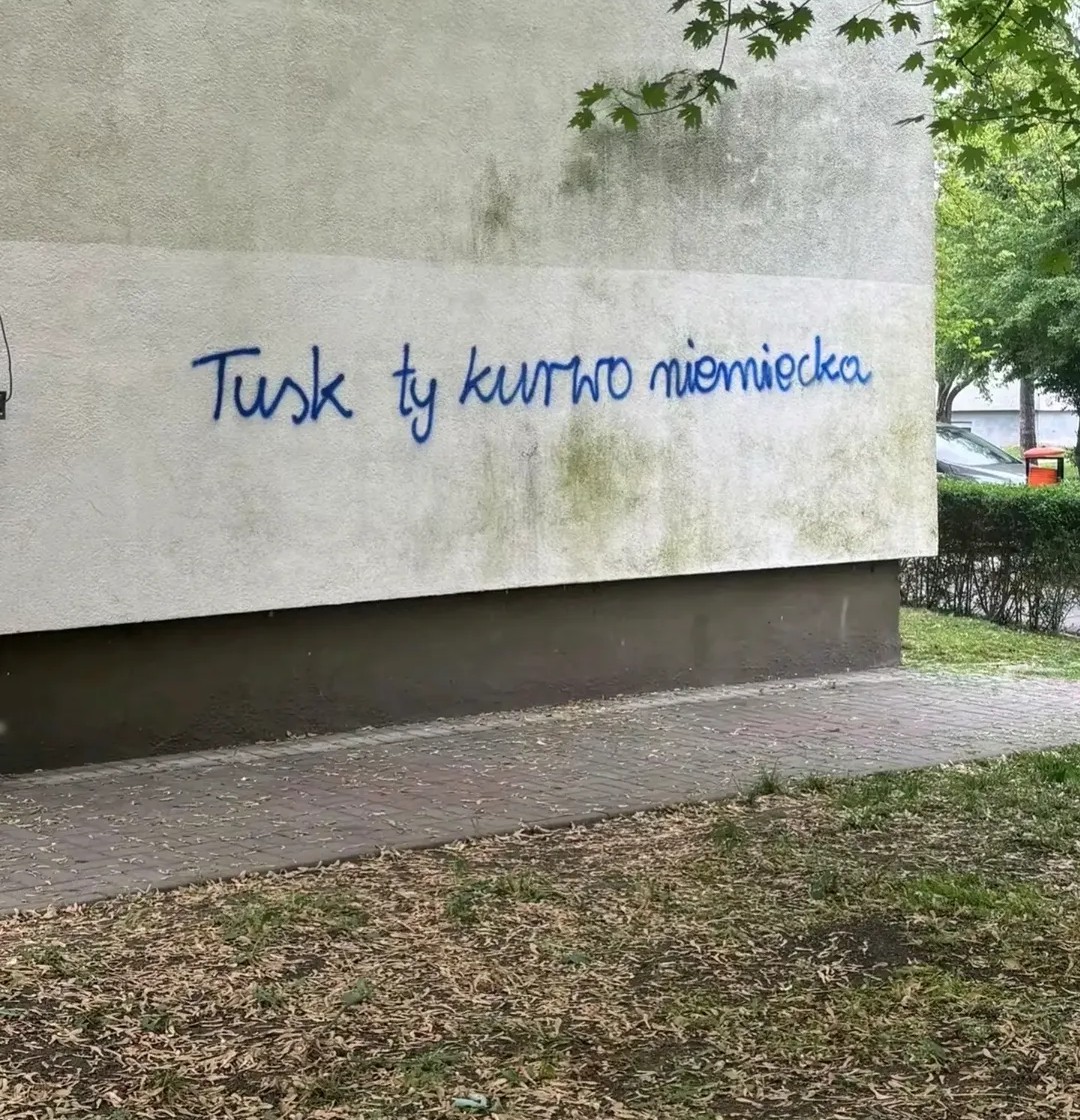 Tusk ty kurwo niemiecka